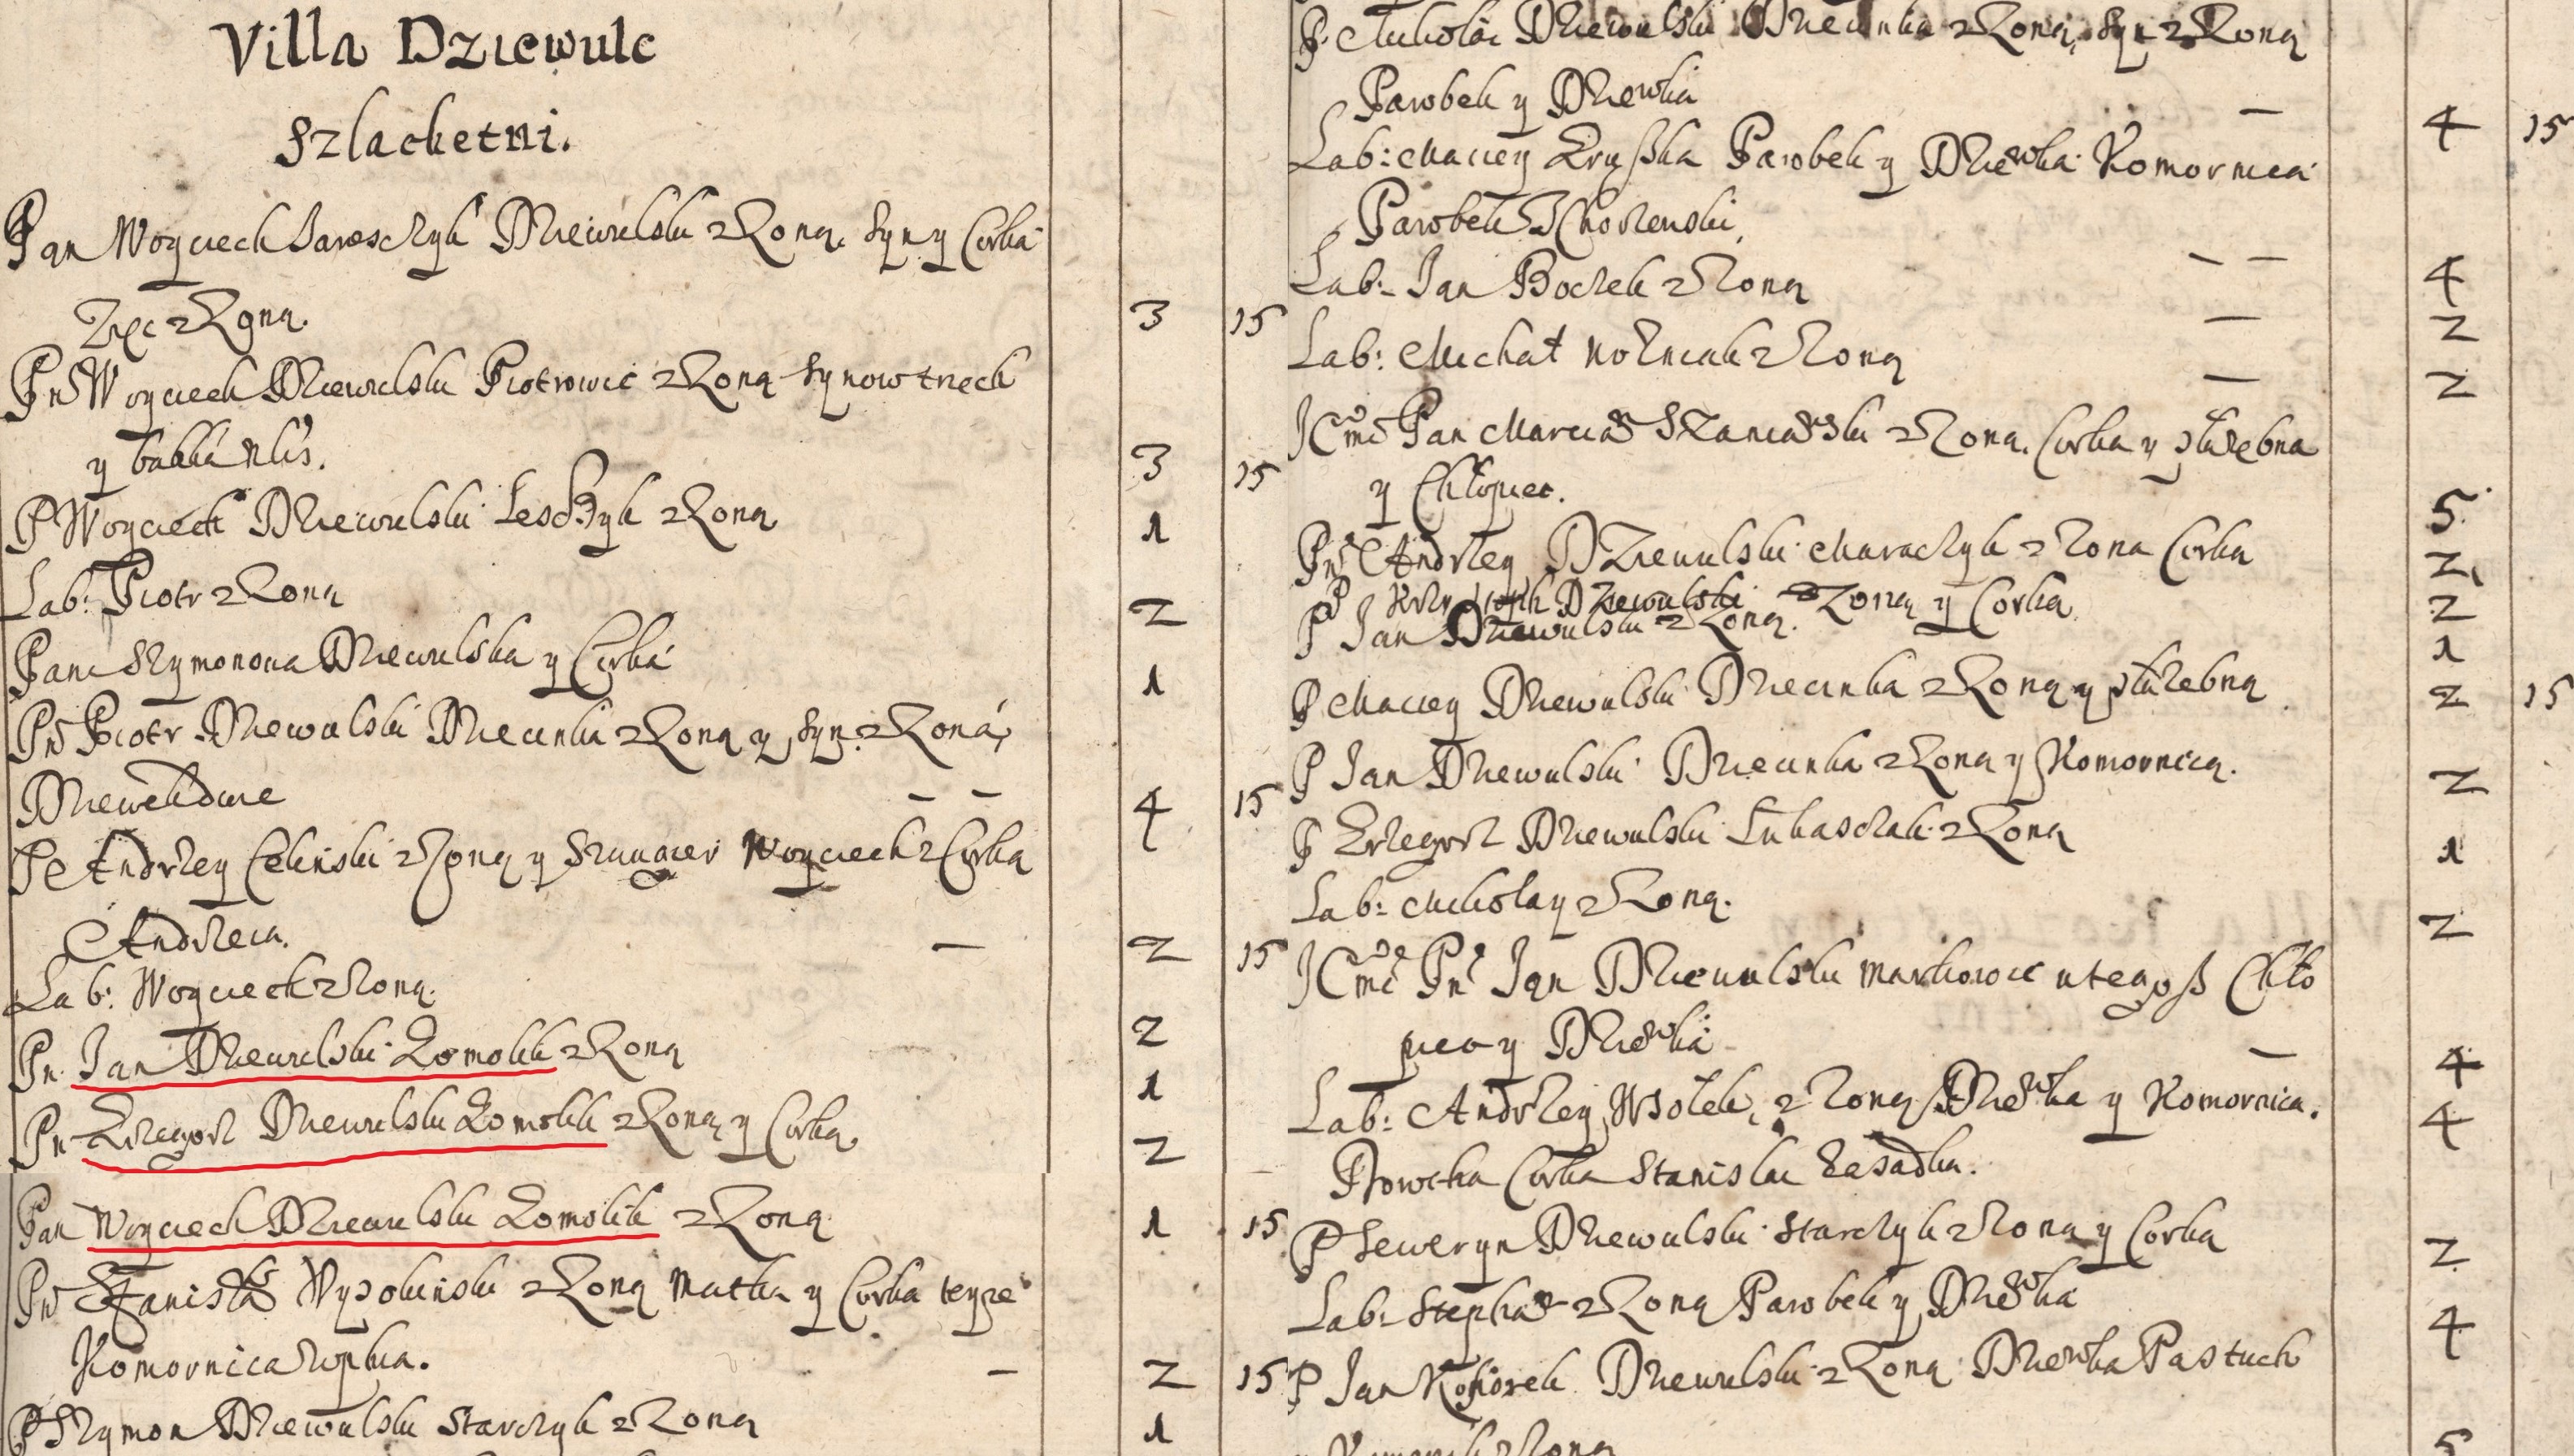 Villa Dziewule
Szlachetni.
Pan Woyciech Dziewulski z Zoną. Syn y Corka
Zięc z Zoną. 3 15
Pn Woyciech Dziewulski Piotrowic z Zoną Synow trzech
y 3 15
P Woyciech Dziewulski z Zoną 1
Lab: Piotr z Zoną 2
Pani Szymonowa Dziewulska y Corka 1
Pn Piotr Dziewulski Dziecinka z Zoną y Syn z Zoną,
Dziewek dwie — — 4 15
P Andrzey Celinski z Zoną y Szwagier Woyciech z Corką
Andrzeia. — 2 15
Lab: Woyciech z Zoną. 2
Pn Jan Dziewulski Zomolik z Zoną 1
Pn Grzegorz Dziewulski Zomolik z Zoną y Corką 2
Pan Woyciech Dziewulski Zomolik z Zoną 1 15
Pn Stanisław Wysokinski z Zoną Matka y Corka teyze
Komornica 2 15
P Szymon Dziewulski Starczyk z Zoną 1
P. Mikołai Dziewulski Dziecinka z Zoną, Syn z Zoną
Parobek y Dziewka — 4 15
Lab: Maciey Parobek y Dziewka Komornica
Parobek — — 4
Lab: Jan Boczek z Zoną — 2
Lab: Michał Nozniak z Zoną — 2
Jmc Pan Marcian z Zoną. Corka y służebna
y Chłopiec. 5
Pn Andrzey Dziewulski z Zoną Corka 2
P Krzysztoph Dziewulski z Zoną y Corką 2
P Jan Dziewulski z Zoną. 1
P Maciey Dziewulski Dziecinka z Zoną y służebną 2 15
P Jan Dziewulski Dziecinka z Zoną y Komornicą. 2
P Grzegorz Dziewulski Łukasczak z Zoną 1
Lab: Mikołay z Zoną. 2
Jmc Pn Jan Dziewulski Markowic u tegoß Chło
piec y Dziewka — 4
Lab: Andrzey Wsołek z Zoną Dziewka y Komornica. 4
Corka Stanisłai
P Seweryn Dziewulski Starczyk z Zoną y Corką 2
Lab: Stephan z Zoną Parobek y Dziewka 4
P Jan Dziewulski z Zoną Dziewka Pastuch
z Zoną 5